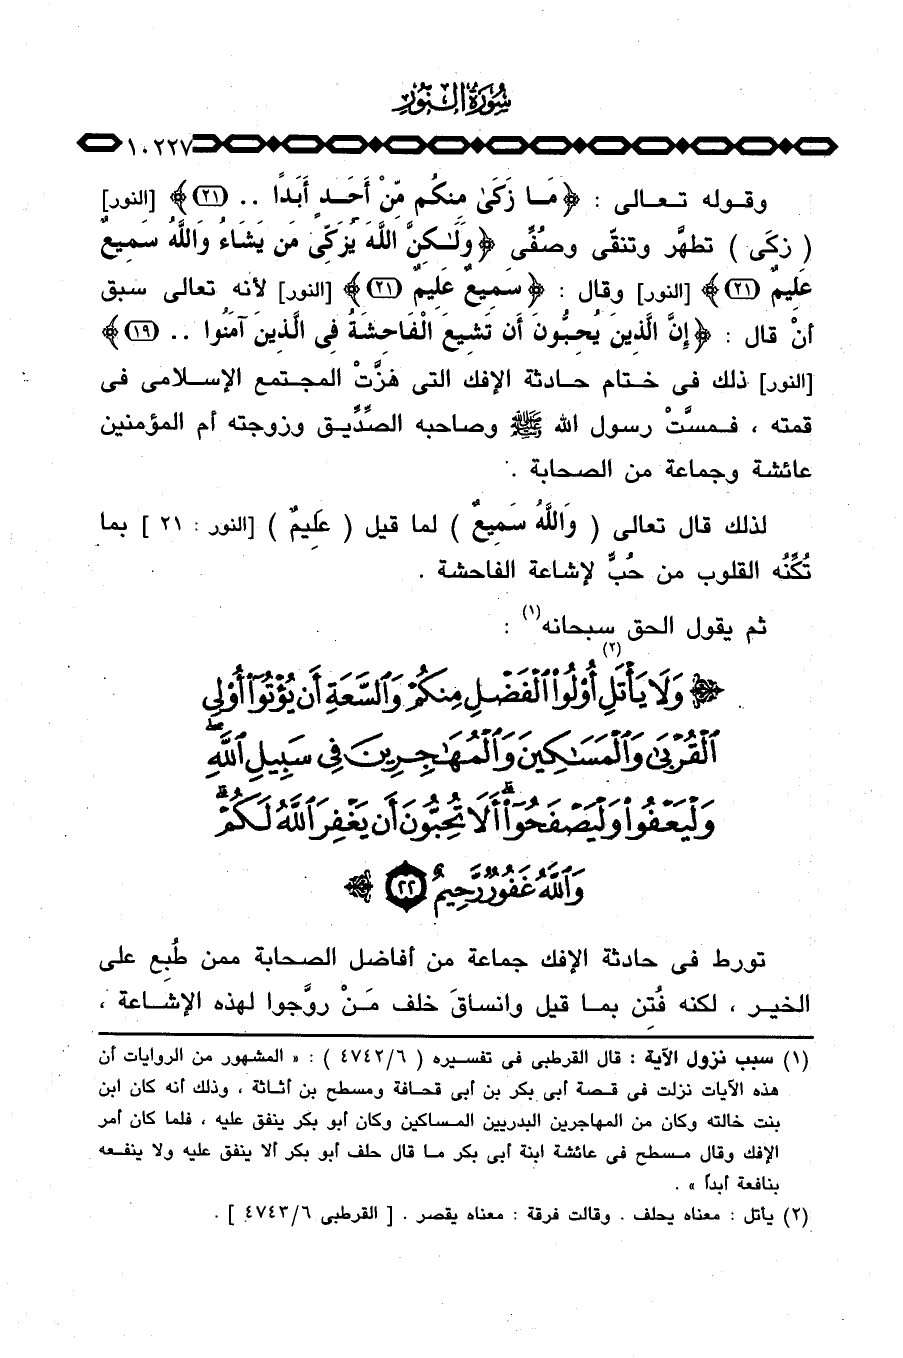 سُورَةُ النُّورِ
١٠٢٢٧
وقوله تعالى : ﴿ مَا زَكَىٰ مِنكُم مِّنْ أَحَدٍ أَبَدًا .. (٢١) ﴾ [النور]
( زكَى ) تطهَّر وتنقَّى وصُفِّى ﴿ وَلَـٰكِنَّ اللَّهَ يُزَكِّى مَن يَشَاءُ وَاللَّهُ سَمِيعٌ
عَلِيمٌ (٢١) ﴾ [النور] وقال : ﴿ سَمِيعٌ عَلِيمٌ (٢١) ﴾ [النور] لأنه تعالى سبق
أنْ قال : ﴿ إِنَّ الَّذِينَ يُحِبُّونَ أَن تَشِيعَ الْفَاحِشَةُ فِى الَّذِينَ آمَنُوا .. (١٩) ﴾
[النور] ذلك فى ختام حادثة الإفك التى هزَّتْ المجتمع الإسلامى فى
قمته ، فمسَّتْ رسول الله ﷺ وصاحبه الصِّدِّيق وزوجته أم المؤمنين
عائشة وجماعة من الصحابة .
لذلك قال تعالى ( وَاللَّهُ سَمِيعٌ ) لما قيل ( عَلِيمٌ ) [النور : ٢١ ] بما
تُكِنُّه القلوب من حُبٍّ لإشاعة الفاحشة .
ثم يقول الحق سبحانه(١) :
﴿ وَلَا يَأْتَلِ(٢) أُوْلُوا۟ ٱلْفَضْلِ مِنكُمْ وَٱلسَّعَةِ أَن يُؤْتُوٓا۟ أُوْلِى
ٱلْقُرْبَىٰ وَٱلْمَسَـٰكِينَ وَٱلْمُهَـٰجِرِينَ فِى سَبِيلِ ٱللَّهِ ۖ
وَلْيَعْفُوا۟ وَلْيَصْفَحُوٓا۟ ۗ أَلَا تُحِبُّونَ أَن يَغْفِرَ ٱللَّهُ لَكُمْ ۗ
وَٱللَّهُ غَفُورٌ رَّحِيمٌ (٢٢) ﴾
تورط فى حادثة الإفك جماعة من أفاضل الصحابة ممن طُبِع على
الخير ، لكنه فُتِن بما قيل وانساقَ خلف مَنْ روَّجوا لهذه الإشاعة ،
(١) سبب نزول الآية : قال القرطبى فى تفسيره ( ٤٧٤٢/٦ ) : « المشهور من الروايات أن
هذه الآيات نزلت فى قصة أبى بكر بن أبى قحافة ومسطح بن أثاثة ، وذلك أنه كان ابن
بنت خالته وكان من المهاجرين البدريين المساكين وكان أبو بكر ينفق عليه ، فلما كان أمر
الإفك وقال مسطح فى عائشة ابنة أبى بكر ما قال حلف أبو بكر ألا ينفق عليه ولا ينفعه
بنافعة أبداً » .
(٢) يأتل : معناه يحلف . وقالت فرقة : معناه يقصر . [ القرطبى ٤٧٤٣/٦ ] .